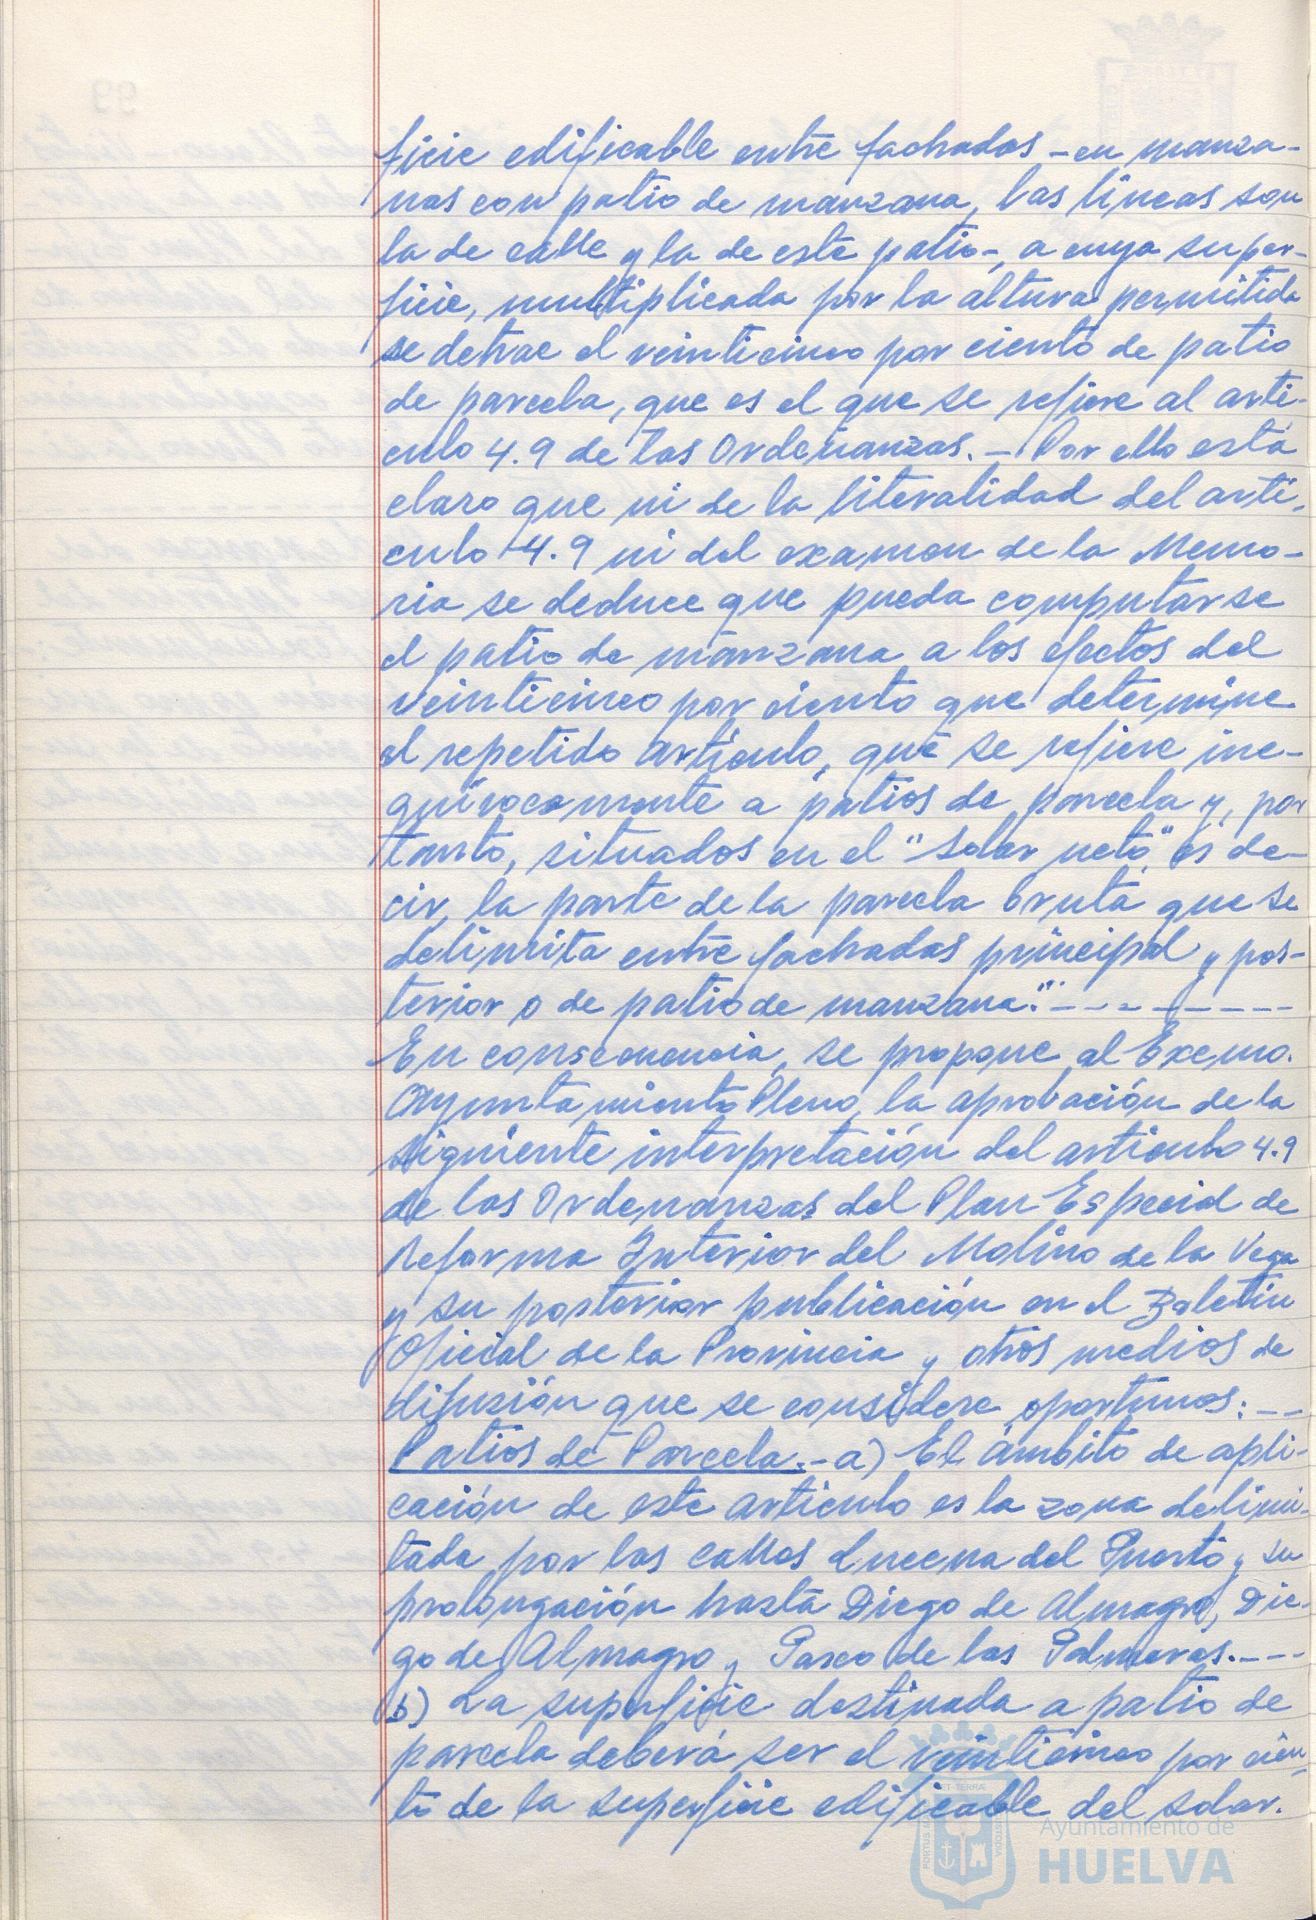 ficie edificable entre fachadas -en manza-
nas con patio de manzana, las líneas son
la de calle y la de este patio-, a cuya super-
ficie, multiplicada por la altura permitida
se detrae el veinticinco por ciento de patio
de parcela, que es el que se refiere al artí-
culo 4.9 de las Ordenanzas.- Por ello está
claro que ni de la literalidad del artí-
culo 4.9 ni del examen de la Memo-
ria se deduce que pueda computarse
el patio de manzana a los efectos del
veinticinco por ciento que determine
el repetido artículo, que se refiere ine-
quívocamente a patios de parcela y, por
tanto, situados en el "solar neto" es de-
cir, la parte de la parcela bruta que se
delimita entre fachadas principal y pos-
terior o de patio de manzana."---------
En consecuencia, se propone al Excmo.
Ayuntamiento Pleno, la aprobación de la
siguiente interpretación del artículo 4.9
de las Ordenanzas del Plan Especial de
Reforma Interior del Molino de la Vega
y su posterior publicación en el Boletín
Oficial de la Provincia y otros medios de
difusión que se considere oportunos:--
Patios de Parcela.- a) El ámbito de apli-
cación de este artículo es la zona delimi-
tada por las calles Lucena del Puerto y su
prolongación hasta Diego de Almagro, Die-
go de Almagro y Paseo de las Palmeras.---
b) La superficie destinada a patio de
parcela deberá ser el veinticinco por cien-
to de la superficie edificable del solar.
Ayuntamiento de
HUELVA